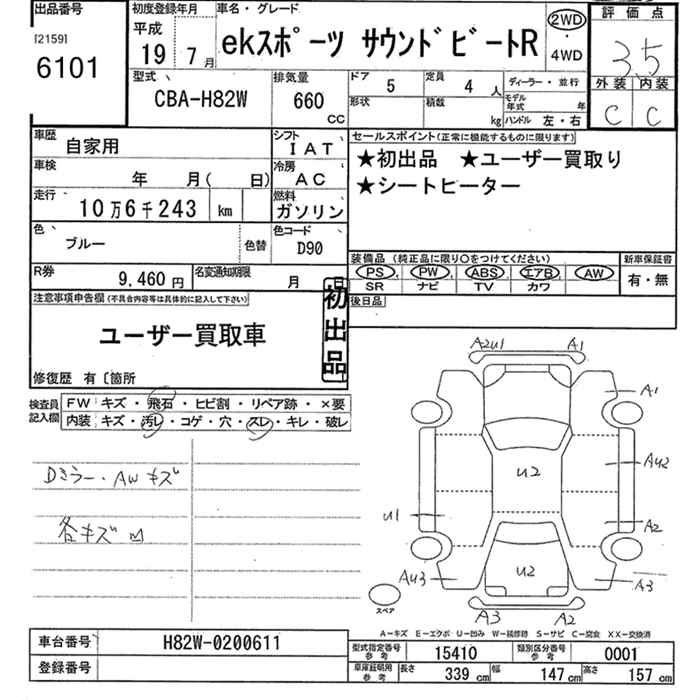 出品番号 初度登録年月 車名・グレード 評価点
[2159] 平成 ekスポーツ サウンドビートR 2WD 3.5
6101 19年 7月 ・ 4WD
外装 内装
C C
型式 排気量 ドア 5 定員 4人 ディーラー・並行
CBA-H82W 660 cc 形状 積載 kg モデル年式 年
ハンドル 左・右
車歴 自家用 シフト IAT セールスポイント(正常に機能するものに限ります)
車検 年 月( 日) 冷房 AC ★初出品 ★ユーザー買取り
走行 10万6千243 km 燃料 ガソリン ★シートヒーター
色 ブルー 色替 色コード D90
装備品(純正品に限り○をつけてください) 新車保証書
R券 9,460円 名変通知期限 月 日 PS PW ABS エアB AW 有・無
SR ナビ TV カワ
注意事項申告欄(不具合内容等は具体的に記入して下さい) 後日品
初出品
ユーザー買取車
修復歴 有〔箇所
検査員記入欄 FW キズ・飛石・ヒビ割・リペア跡・×要
内装 キズ・汚レ・コゲ・穴・スレ・キレ・破レ
Dミラー・AWキズ
各キズ凹
A2U1 A1
A1
U2 AU2
U1 A2
AU3 U2 A3
スペア A3 A2
A−キズ E−エクボ U−凹み W−補修跡 S−サビ C−腐食 XX−交換済
車台番号 H82W-0200611 型式指定番号 参考 15410 類別区分番号 参考 0001
登録番号 車庫証明用 参考 長さ 339cm 幅 147cm 高さ 157cm